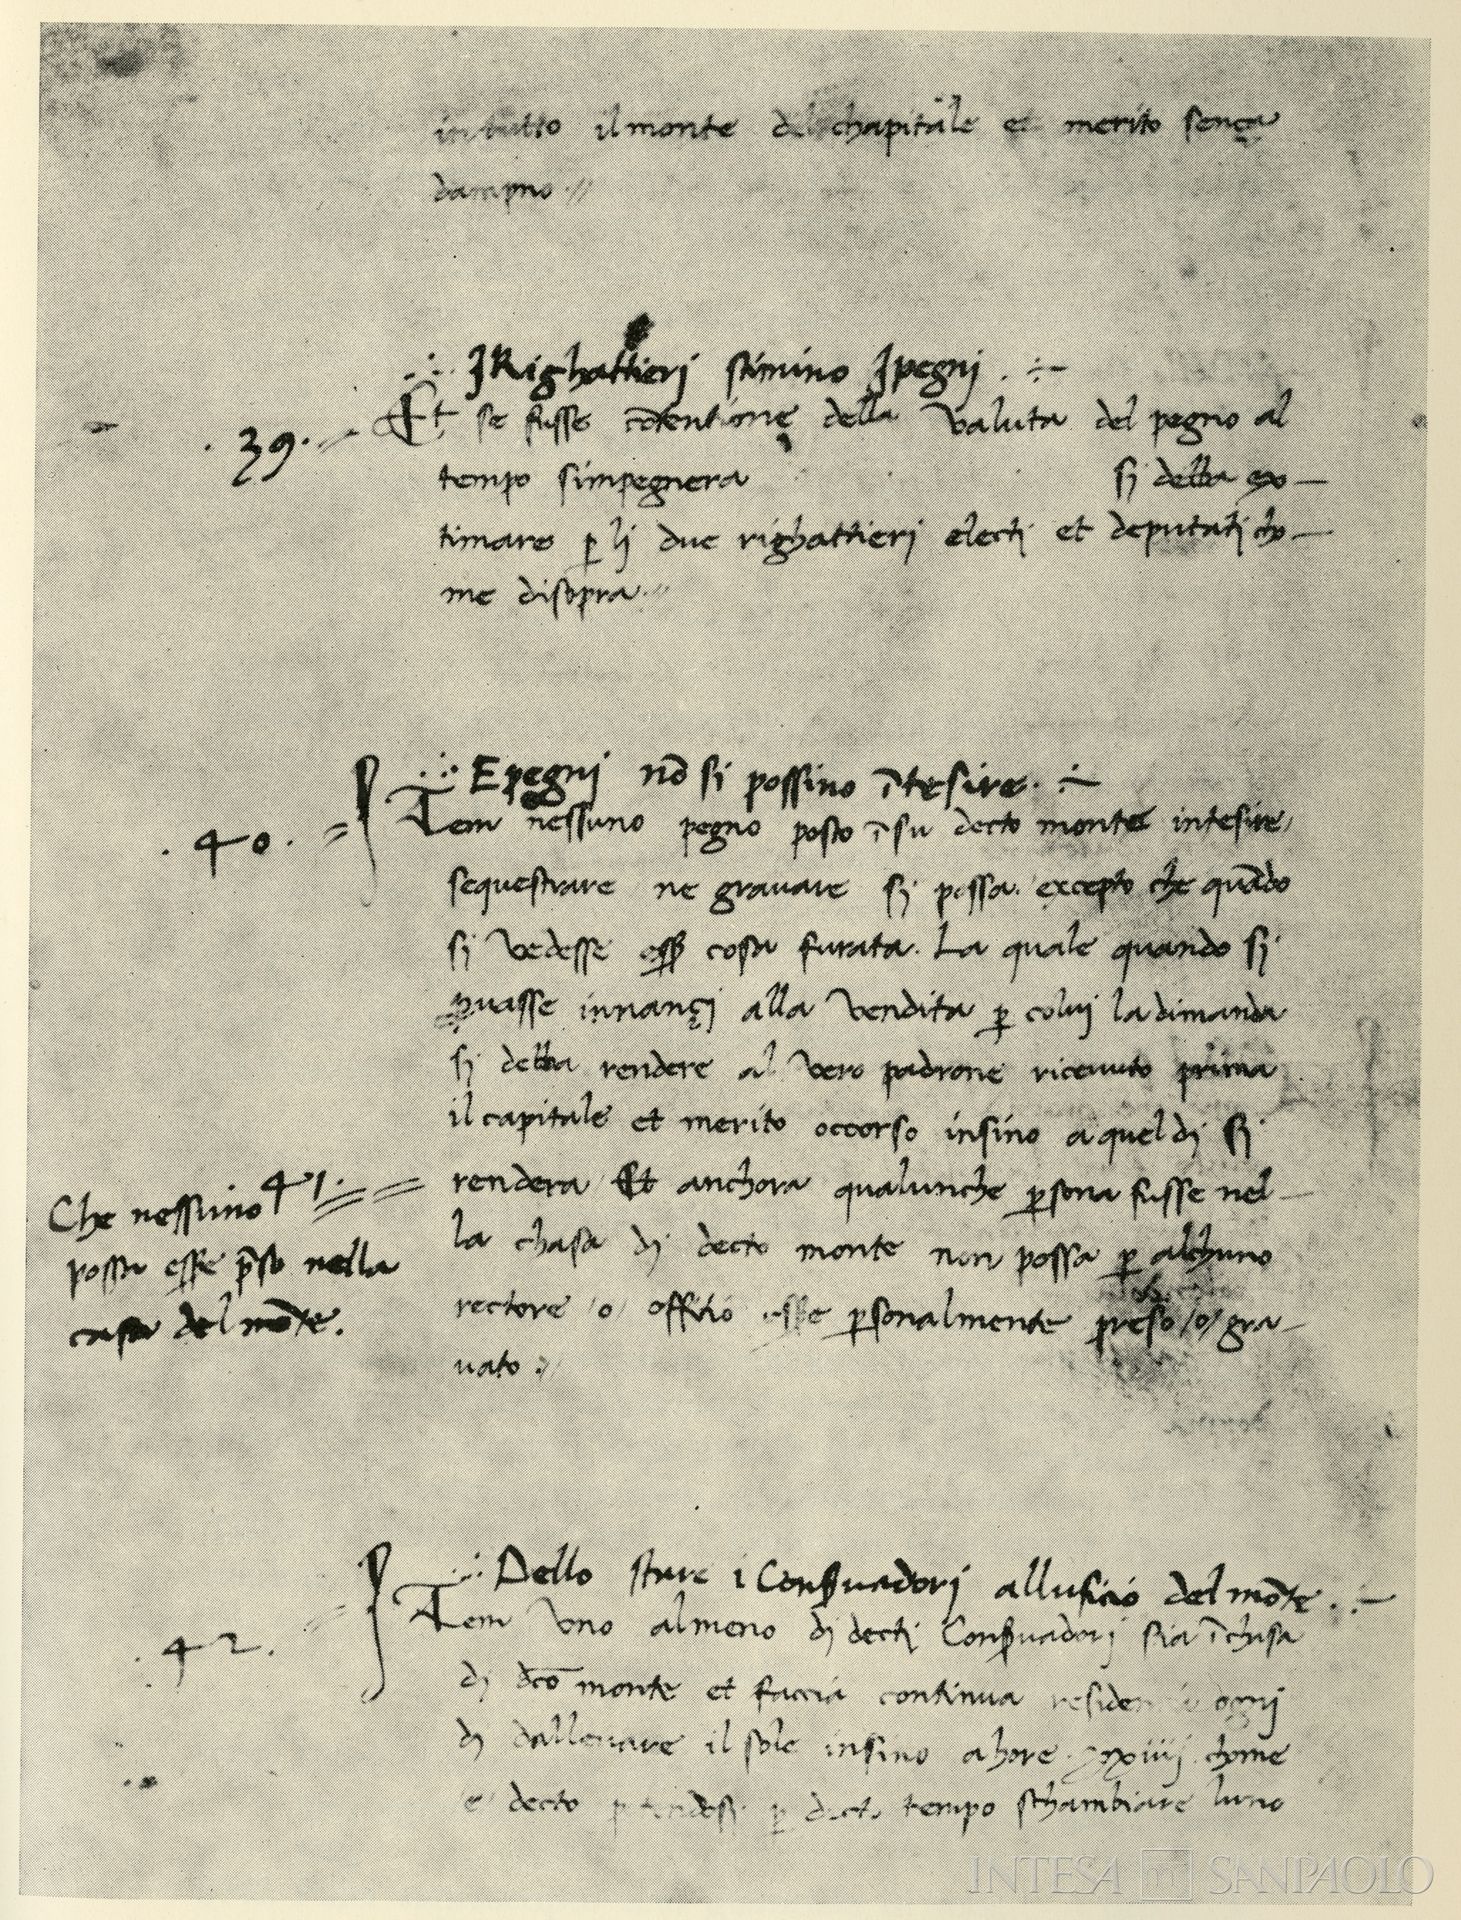 in tutto il monte del chapitale et merito sença
dampno .//
∴ I Righattieri stimino I pegni . ÷
. 39 . Et se fusse cōtentione della valuta del pegno al
tempo simpegnera si debba ex–
timare p̱ lj due righattierj electj et deputatj cho–
me disopra
∴ E pegnj nō sj possino ītesire . ÷
. 40 . Item nessuno pegno posto ī su decto monte intesire/
sequestrare ne gravare sj possa. excepto che quādo
sj vedesse esse cosa furata. La quale quando sj
pvasse innançj alla vendita p̱ coluj ladimanda
sj debba rendere al vero padrone ricevuto prima
il capitale et merito occorso insino aqueldj sj
rendera Et anchora qualunche p̱sona fusse nel–
la chasa dj decto monte non possa p̱ alchuno
rectore /o/ offitio esse p̱sonalmente preso /o/ gra–
vato .
Che nessuno 41 .
possa esse p̄so nella
casa del mōte.
∴ Dello stare i Consvadorj allufitio del mōte . ÷
. 42 . Item uno almeno dj dectj Consvadorj sia ī chasa
dj dco monte et faccia continua residentia ognj
dj dallevare il sole insino ahore xxiiij chome
e decto decto tempo schambiare luno
INTESA SANPAOLO